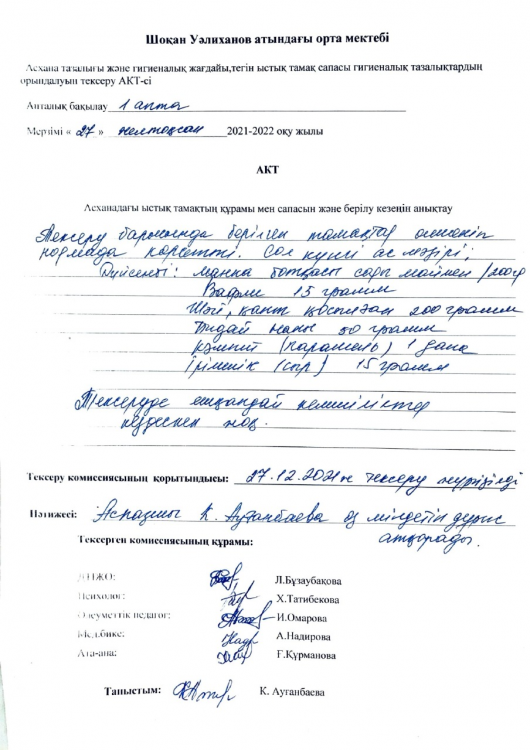 Шоқан Уәлиханов атындағы орта мектебі
Асхана тазалығы және гигиеналық жағдайы,тегін ыстық тамақ сапасы гигиеналық тазалықтардың
орындалуын тексеру АКТ-сі
Апталық бақылау 1 апта
Мерзімі « 27 » желтоқсан 2021-2022 оқу жылы
АКТ
Асханадағы ыстық тамақтың құрамы мен сапасын және берілу кезеңін анықтау
Тексеру барысында берілген тамақтар
нормада көрсетті. Сол күнгі ас мәзірі;
Дүйсенбі: манка ботқасы сары маймен /200гр
Вафли 15 грамм
Шәй, қант қоспадан 200 грамм
Бидай наны 50 грамм
кәмпит (карамель) 1 дана
Ірімшік (сыр) 15 грамм
Тексеруде ешқандай кемшіліктер
кездескен жоқ.
Тексеру комиссиясының қорытындысы: 27.12.2021ж тексеру жүргізілді
Нәтижесі: Аспазшы К. Ауганбаева өз міндетін дұрыс
атқарады.
Тексерген комиссиясының құрамы:
ДТІЖО: Л.Бұзаубакова
Психолог: Х.Татибекова
Әлеуметтік педагог: И.Омарова
Мед.бике: А.Надирова
Ата-ана: Ғ.Құрманова
Таныстым: К. Ауганбаева